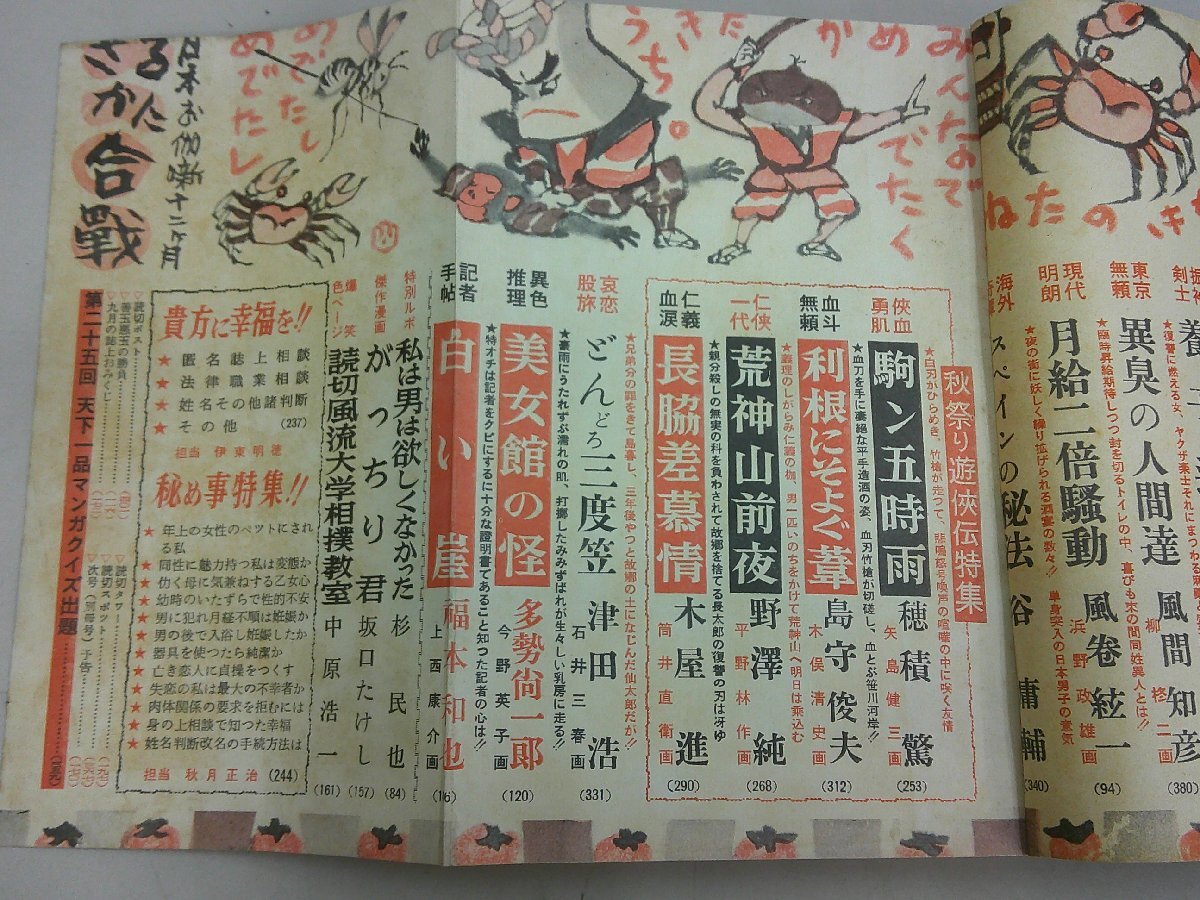 みんなで
めでたく
かたきうち。
めでたし
めでたし
日本お伽噺十二ヶ月
さるかに合戦
現代
明朗
月給二倍騒動
浜野政雄画
風巻絃一
(94)
★夜の街に妖しく繰り拡げられる酒宴の数々!!
単身突入の日本男子の意気
東京
無頼
異臭の人間達
風間知彦
(380)
海外
スペインの秘法
(340)
秋祭り遊侠伝特集
侠血
勇肌
駒ン五時雨
矢島健三画
穂積驚
(253)
★血刀を手に凄絶な平手造酒の姿、血刃竹槍が切磋し、血とぶ笹川河岸!!
血斗
無頼
利根にそよぐ葦
木俣清史画
島守俊夫
(312)
★義理のしがらみ仁義の枷、男一匹いのちをかけて荒神山へ明日は乗込む
仁侠
一代
荒神山前夜
平野林作画
野澤純
(268)
★親分殺しの無実の科を負わされて故郷を捨てる長太郎の復讐の刃は冴ゆ
仁義
血涙
長脇差慕情
筒井直衛画
木屋進
(290)
★兄弟分の罪をきて島暮し、三年後やつと故郷の土になじんだ仙太郎だが!!
哀恋
股旅
どんどろ三度笠
石井三春画
津田浩
(331)
★豪雨にうたれずぶ濡れの肌、打擲したみみずばれが生々しい乳房に走る!!
異色
推理
美女館の怪
今野英子画
多勢尚一郎
(120)
★特オチは記者をクビにするに十分な證明書であること知った記者の心は!!
記者
手帖
白い崖
上西康介画
福本和也
特別ルポ
私は男は欲しくなかった
杉民也
(84)
傑作漫画
がっちり君
坂口たけし
(157)
爆笑
色ページ
読切風流大学相撲教室
中原浩一
(161)
貴方に幸福を!!
★匿名誌上相談
★法律職業相談
★姓名その他諸判断
★その他 (237)
担当 伊東明徳
秘め事特集!!
★年上の女性のペットにされる私
★同性に魅力持つ私は変態か
★仂く母に気兼ねする乙女心
★幼時のいたずらで性的不安
★男に犯れ月経不順は妊娠か
★男の後で入浴し妊娠したか
★器具を使つたら純潔か
★亡き恋人に貞操をつくす
★失恋の私は最大の不幸者か
★肉体関係の要求を拒むには
★身の上相談で知つた幸福
★姓名判断改名の手続方法は
担当 秋月正治 (244)
▽読切ポスト
▽善玉悪玉の勝負
▽九月の誌上おみくじ
▽読切タワー
▽読切スポット
▽次号(別冊号)予告
第二十五回 天下一品マンガクイズ出題